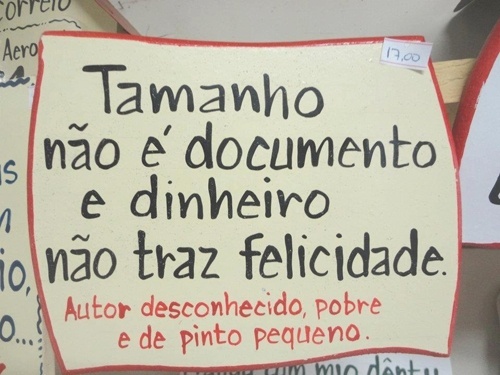 correio
Aero
17,00
Tamanho
não é documento
e dinheiro
não traz felicidade.
Autor desconhecido, pobre
e de pinto pequeno.